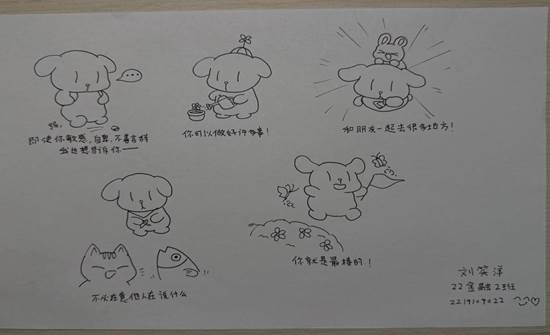 即使你敏感,自卑,不善言辞
我也想告诉你——
你可以做好许多事!
和朋友一起去很多地方!
不必在意他人在说什么
你就是最棒的!
刘笑洋
22金融2班